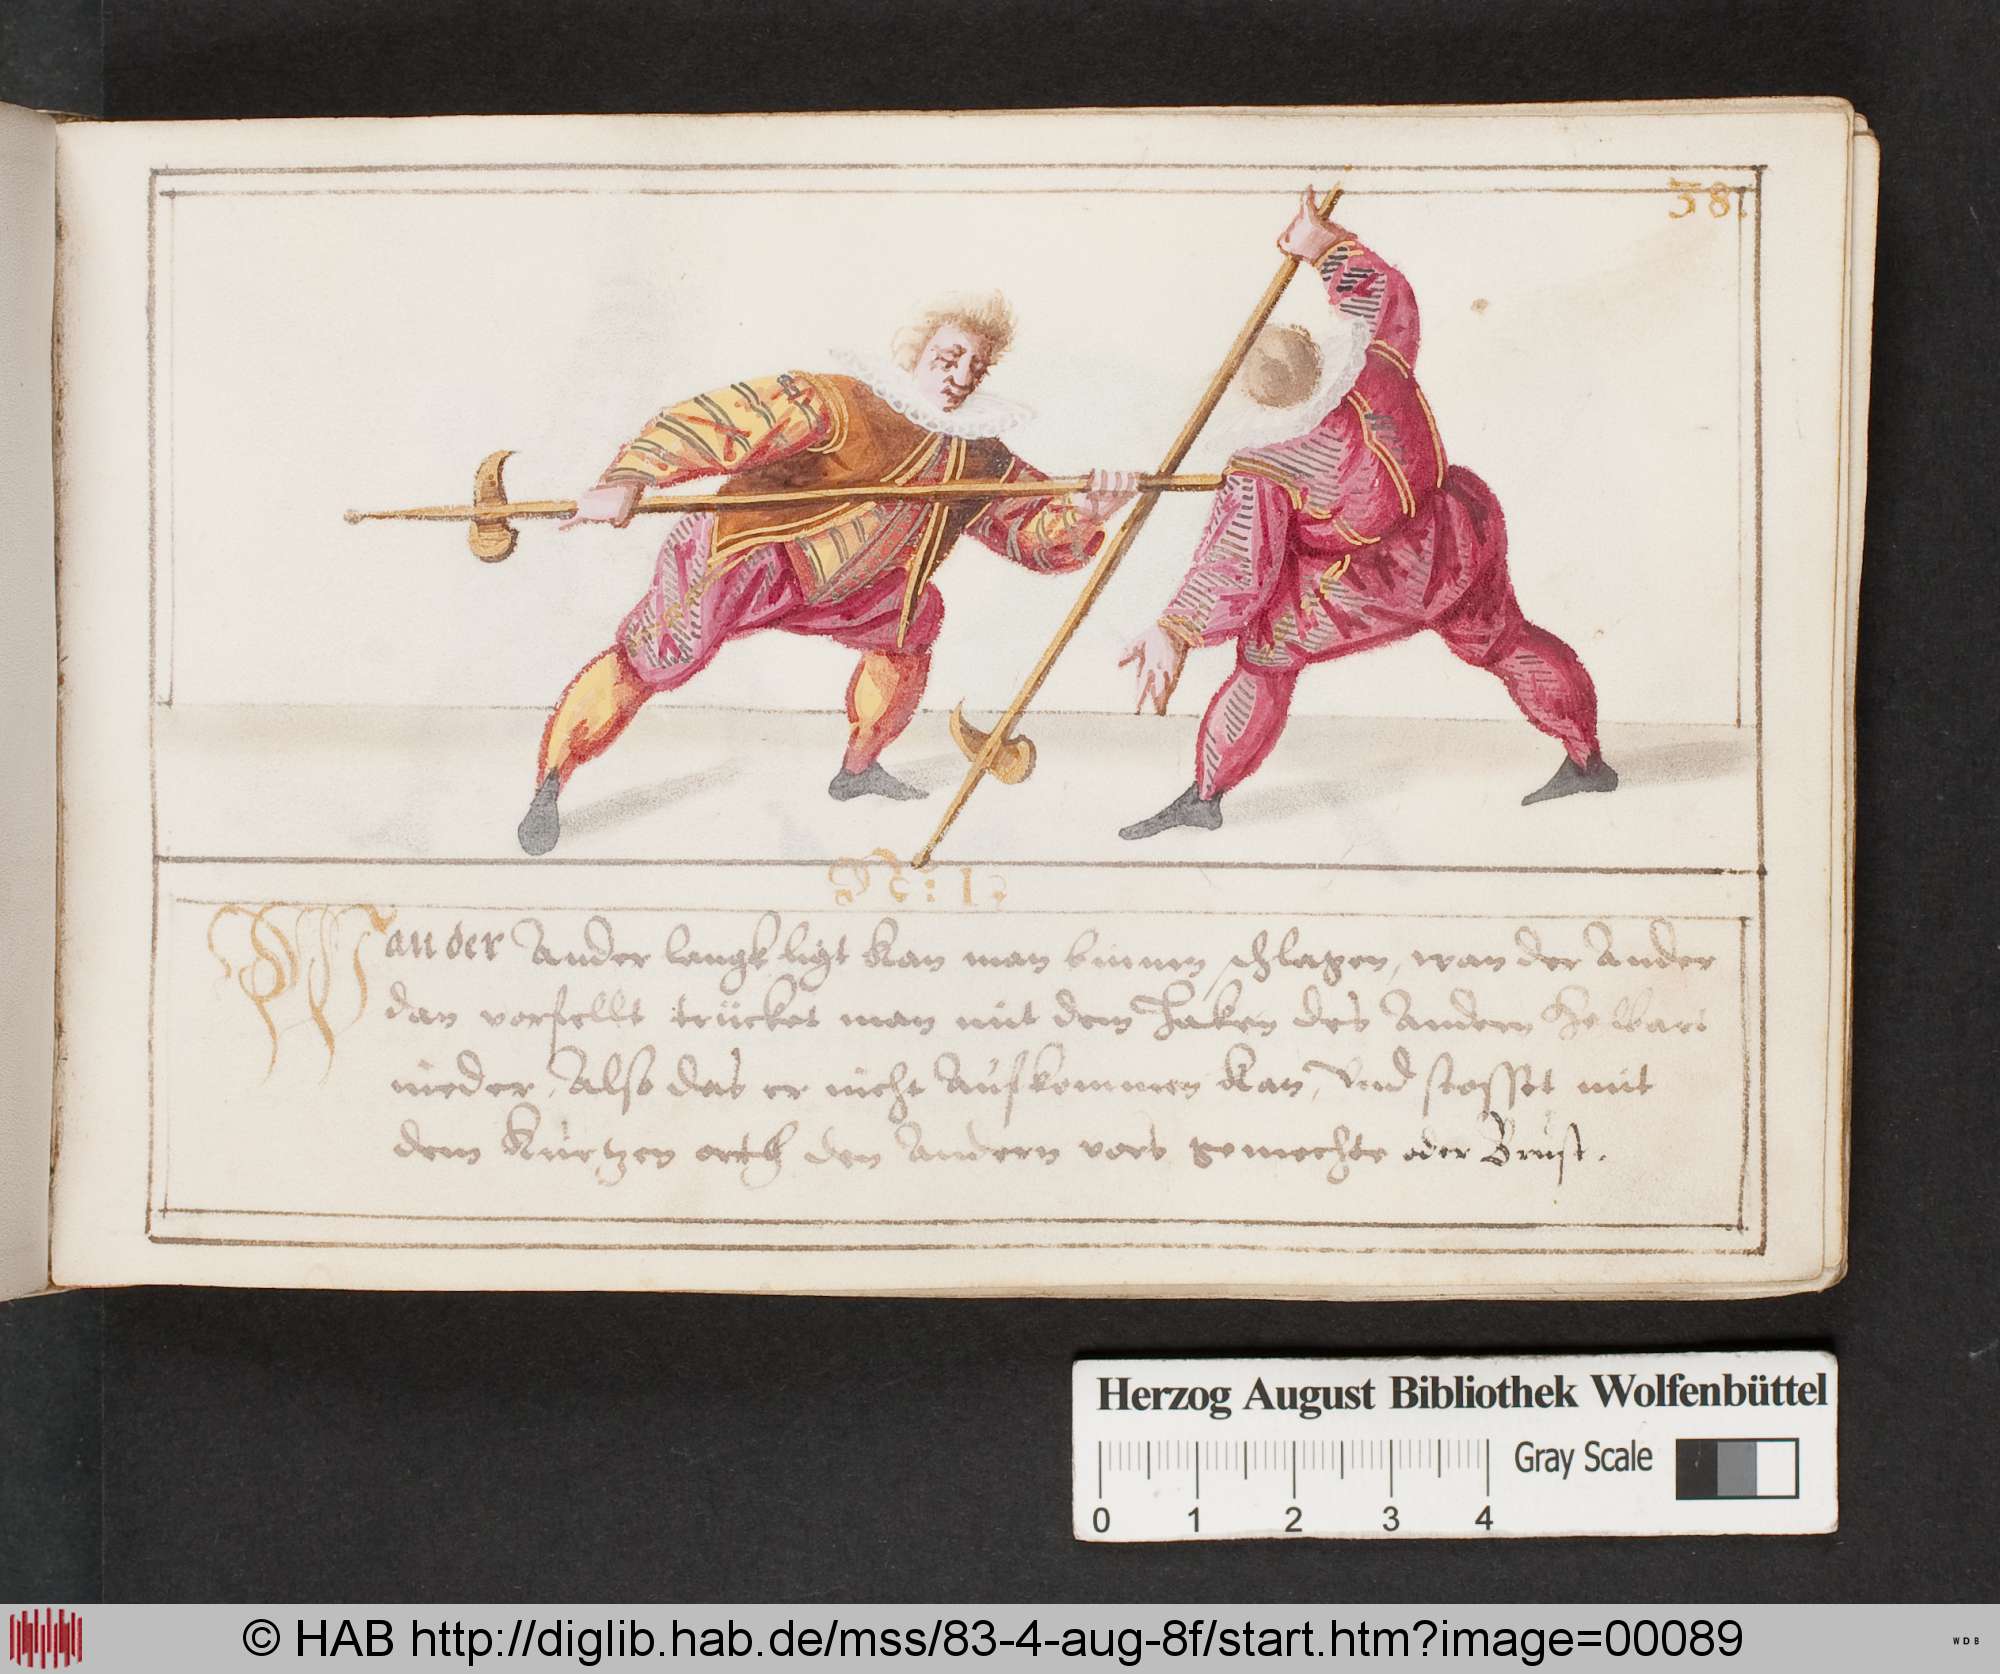 38.
N: 1.
Wan der Ander langk ligt kan man binnen schlagen, wan der Ander
dan vorfellt trücket man mit dem Haken des Andern Helbart
nieder, Also das er nicht Aufkommen kan, Und stosset mit
dem kurtzen orth den Andern vors gemechte oder Brust.
Herzog August Bibliothek Wolfenbüttel
Gray Scale
0 1 2 3 4
© HAB http://diglib.hab.de/mss/83-4-aug-8f/start.htm?image=00089
WDB